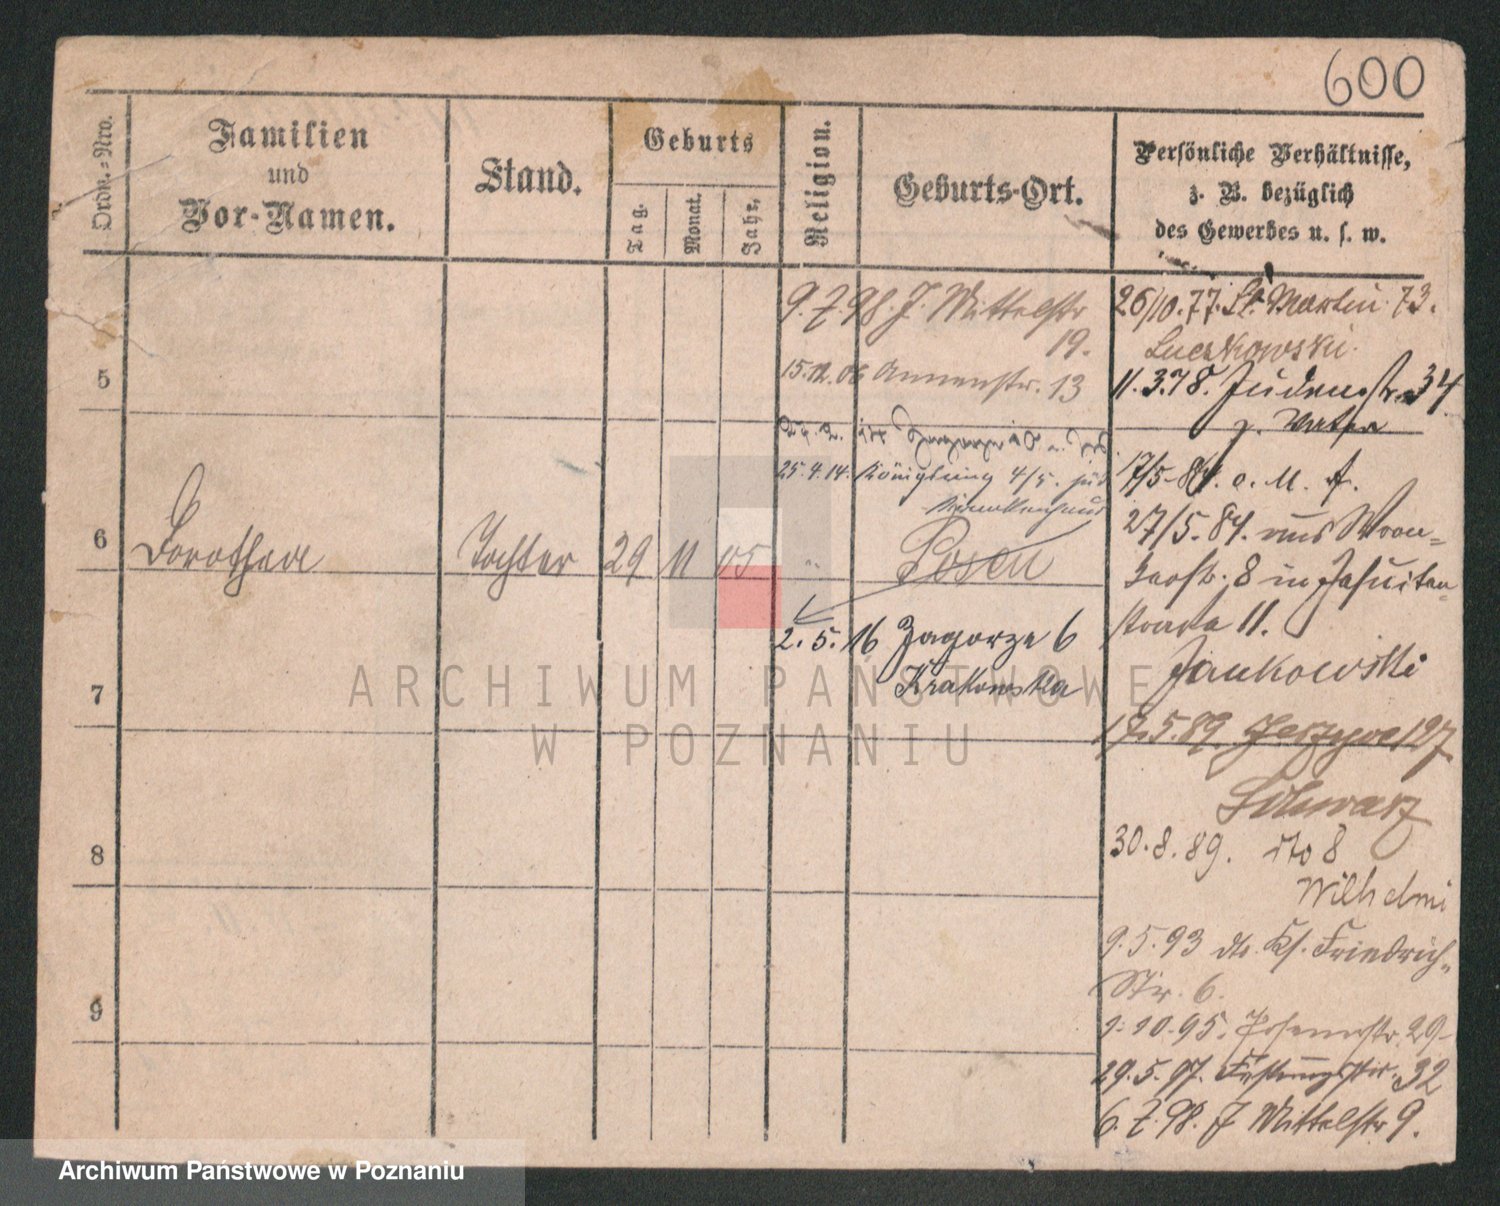 600
Ordn.-Nro.
Familien
und
Vor-Namen.
Stand.
Geburts
Tag.
Monat.
Jahr.
Religion.
Geburts-Ort.
Persönliche Verhältnisse,
z. B. bezüglich
des Gewerbes u. s. w.
5
6 Dorothea Tochter 29 11 05 " Posen
7
8
9
9.7.98. J. Mittelstr
19.
15.12.06 Annenstr. 13
25.4.14. Königsring 4/5. jüd
Krankenhaus
2. 5. 16 Zagorze 6
Krakowska
26/10.77. St. Martin 73.
Luczkowski.
11.3.78. Judenstr. 34
z. Vater
17/5.84. o. M. f.
27/5.84. aus Wron=
kerstr. 8 in Jesuiten=
strasse 11.
Jankowski
17.5.89. Jerzyce 127
Schwarz
30.8.89. dto 8
Wilhelmi
9.5.93 dto. Ks. Friedrich-
Str. 6.
1.10.95. Posenerstr. 29
29.5.97. Festungsstr. 32
6.7.98. J Mittelstr 9.
ARCHIWUM PAŃSTWOWE
W POZNANIU
Archiwum Państwowe w Poznaniu